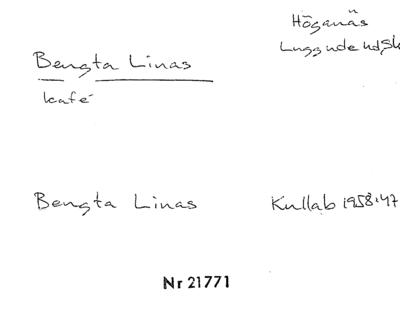 Höganäs
Luggude hdsk
Bengta Linas
kafé
Bengta Linas Kullab 1958:47
Nr 21771